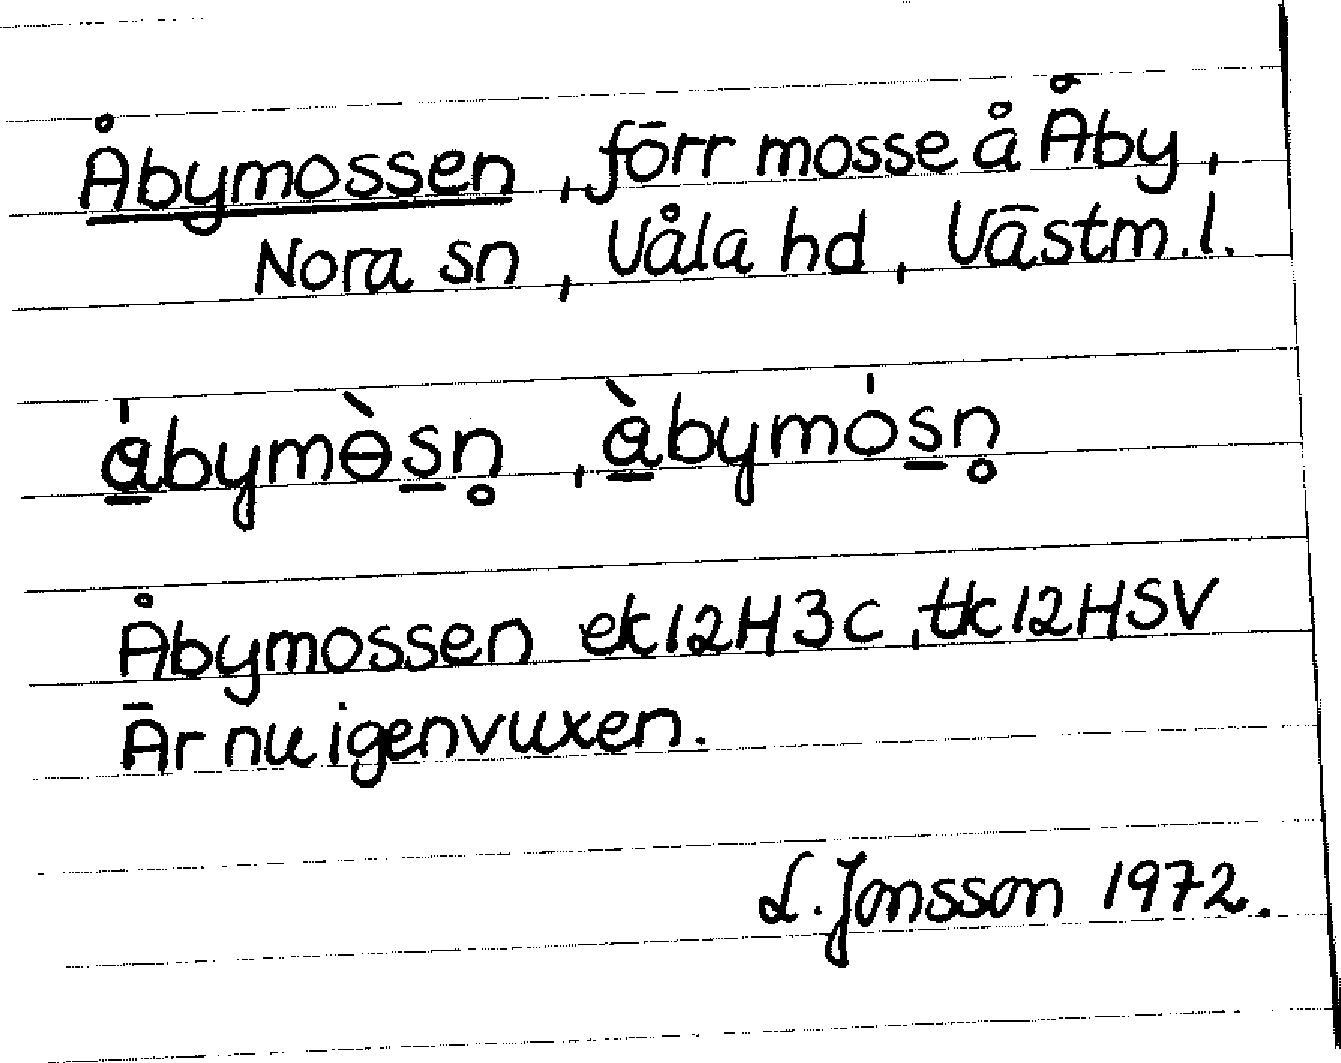 Åbymossen, förr mosse å Åby,
Nora sn, Våla hd, Västm.l.
å̲bymɵ̀s̲n̥, å̲̀bymós̲n̥
Åbymossen ek 12H3c, tk 12HSV
Är nu igenvuxen.
L. Jonsson 1972.